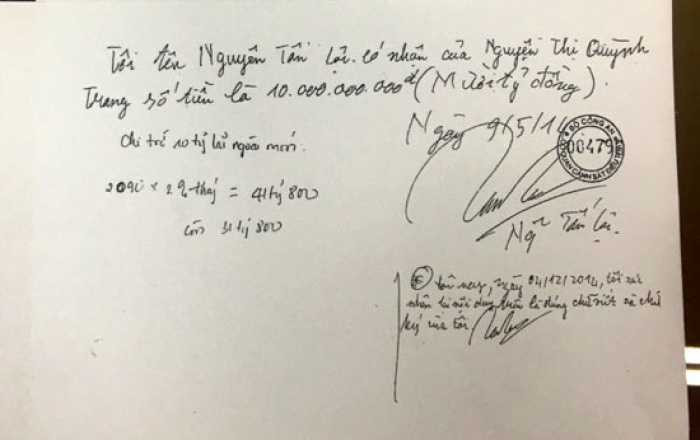 Tôi tên Nguyễn Tấn Lợi. có nhận của Nguyễn Thị Quỳnh
Trang số tiền là 10.000.000.000đ (Mười tỷ đồng).
Ngày 9/5/14
Chi trả 10 tỷ lãi ngoài
BỘ CÔNG AN
00479
CƠ QUAN CẢNH SÁT ĐIỀU TRA
2090 x 2% tháng = 41tỷ 800
còn 31 tỷ 800
Ng Tấn Lợi.
ngày 04/12/2014, tôi xác
nhận là nội dung trên là đúng chữ viết và chữ
ký của tôi